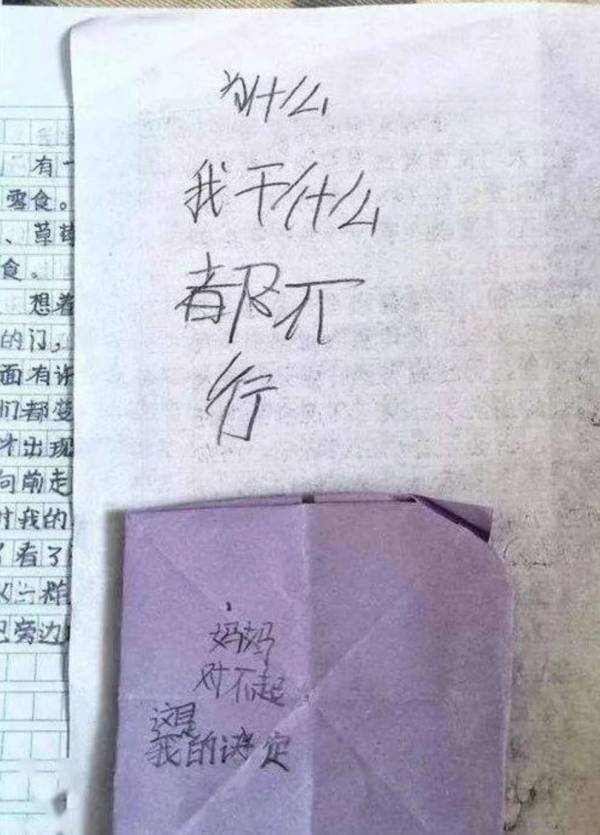 为什么
我干什么
都不
行
妈妈
对不起
这是
我的决定
有一
零食。
、草莓
食。
想着
的门，
面有许
们都变
才出现
向前走
对我的
了看了
旁边